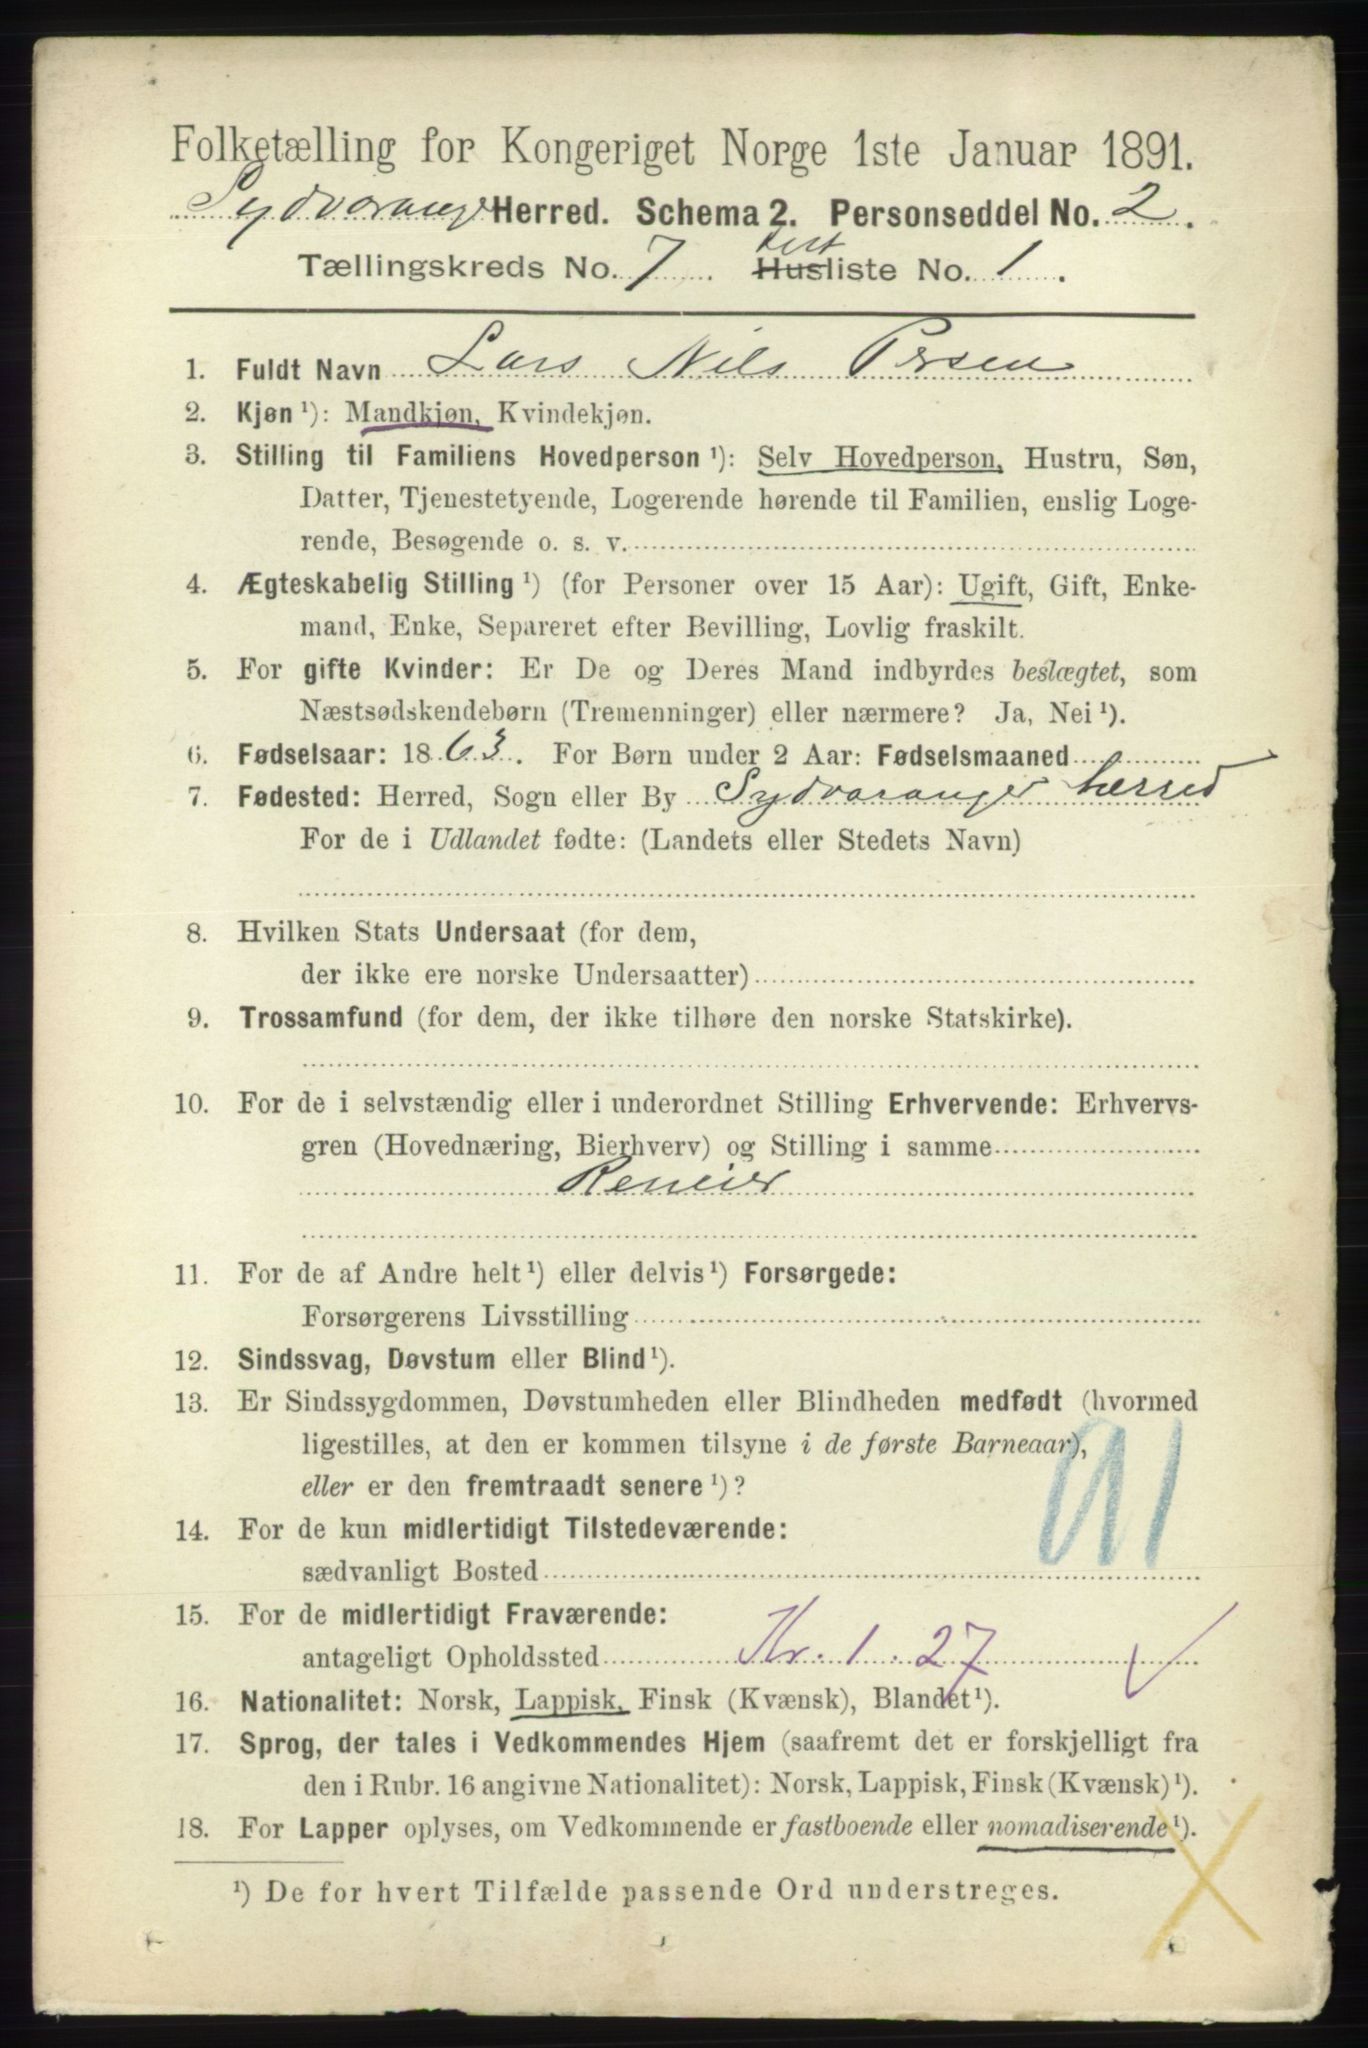 Folketælling for Kongeriget Norge 1ste Januar 1891.
Sydvaranger Herred. Schema 2. Personseddel No. 2.
telt
Tællingskreds No. 7. Husliste No. 1.
1. Fuldt Navn Lars Nils Persen
2. Kjøn ¹): Mandkjøn, Kvindekjøn.
3. Stilling til Familiens Hovedperson ¹): Selv Hovedperson, Hustru, Søn,
Datter, Tjenestetyende, Logerende hørende til Familien, enslig Loge-
rende, Besøgende o. s. v.
4. Ægteskabelig Stilling ¹) (for Personer over 15 Aar): Ugift, Gift, Enke-
mand, Enke, Separeret efter Bevilling, Lovlig fraskilt.
5. For gifte Kvinder: Er De og Deres Mand indbyrdes beslægtet, som
Næstsødskendebørn (Tremenninger) eller nærmere? Ja, Nei ¹).
6. Fødselsaar: 1863. For Børn under 2 Aar: Fødselsmaaned
7. Fødested: Herred, Sogn eller By Sydvaranger herred
For de i Udlandet fødte: (Landets eller Stedets Navn)
8. Hvilken Stats Undersaat (for dem,
der ikke ere norske Undersaatter)
9. Trossamfund (for dem, der ikke tilhøre den norske Statskirke).
10. For de i selvstændig eller i underordnet Stilling Erhvervende: Erhvervs-
gren (Hovednæring, Bierhverv) og Stilling i samme
Reneier
11. For de af Andre helt ¹) eller delvis ¹) Forsørgede:
Forsørgerens Livsstilling
12. Sindssvag, Døvstum eller Blind ¹).
13. Er Sindssygdommen, Døvstumheden eller Blindheden medfødt (hvormed
ligestilles, at den er kommen tilsyne i de første Barneaar),
eller er den fremtraadt senere ¹)?
91
14. For de kun midlertidigt Tilstedeværende:
sædvanligt Bosted
15. For de midlertidigt Fraværende:
antageligt Opholdssted Kr. 1. 27
16. Nationalitet: Norsk, Lappisk, Finsk (Kvænsk), Blandet ¹).
17. Sprog, der tales i Vedkommendes Hjem (saafremt det er forskjelligt fra
den i Rubr. 16 angivne Nationalitet): Norsk, Lappisk, Finsk (Kvænsk) ¹).
18. For Lapper oplyses, om Vedkommende er fastboende eller nomadiserende ¹).
¹) De for hvert Tilfælde passende Ord understreges.